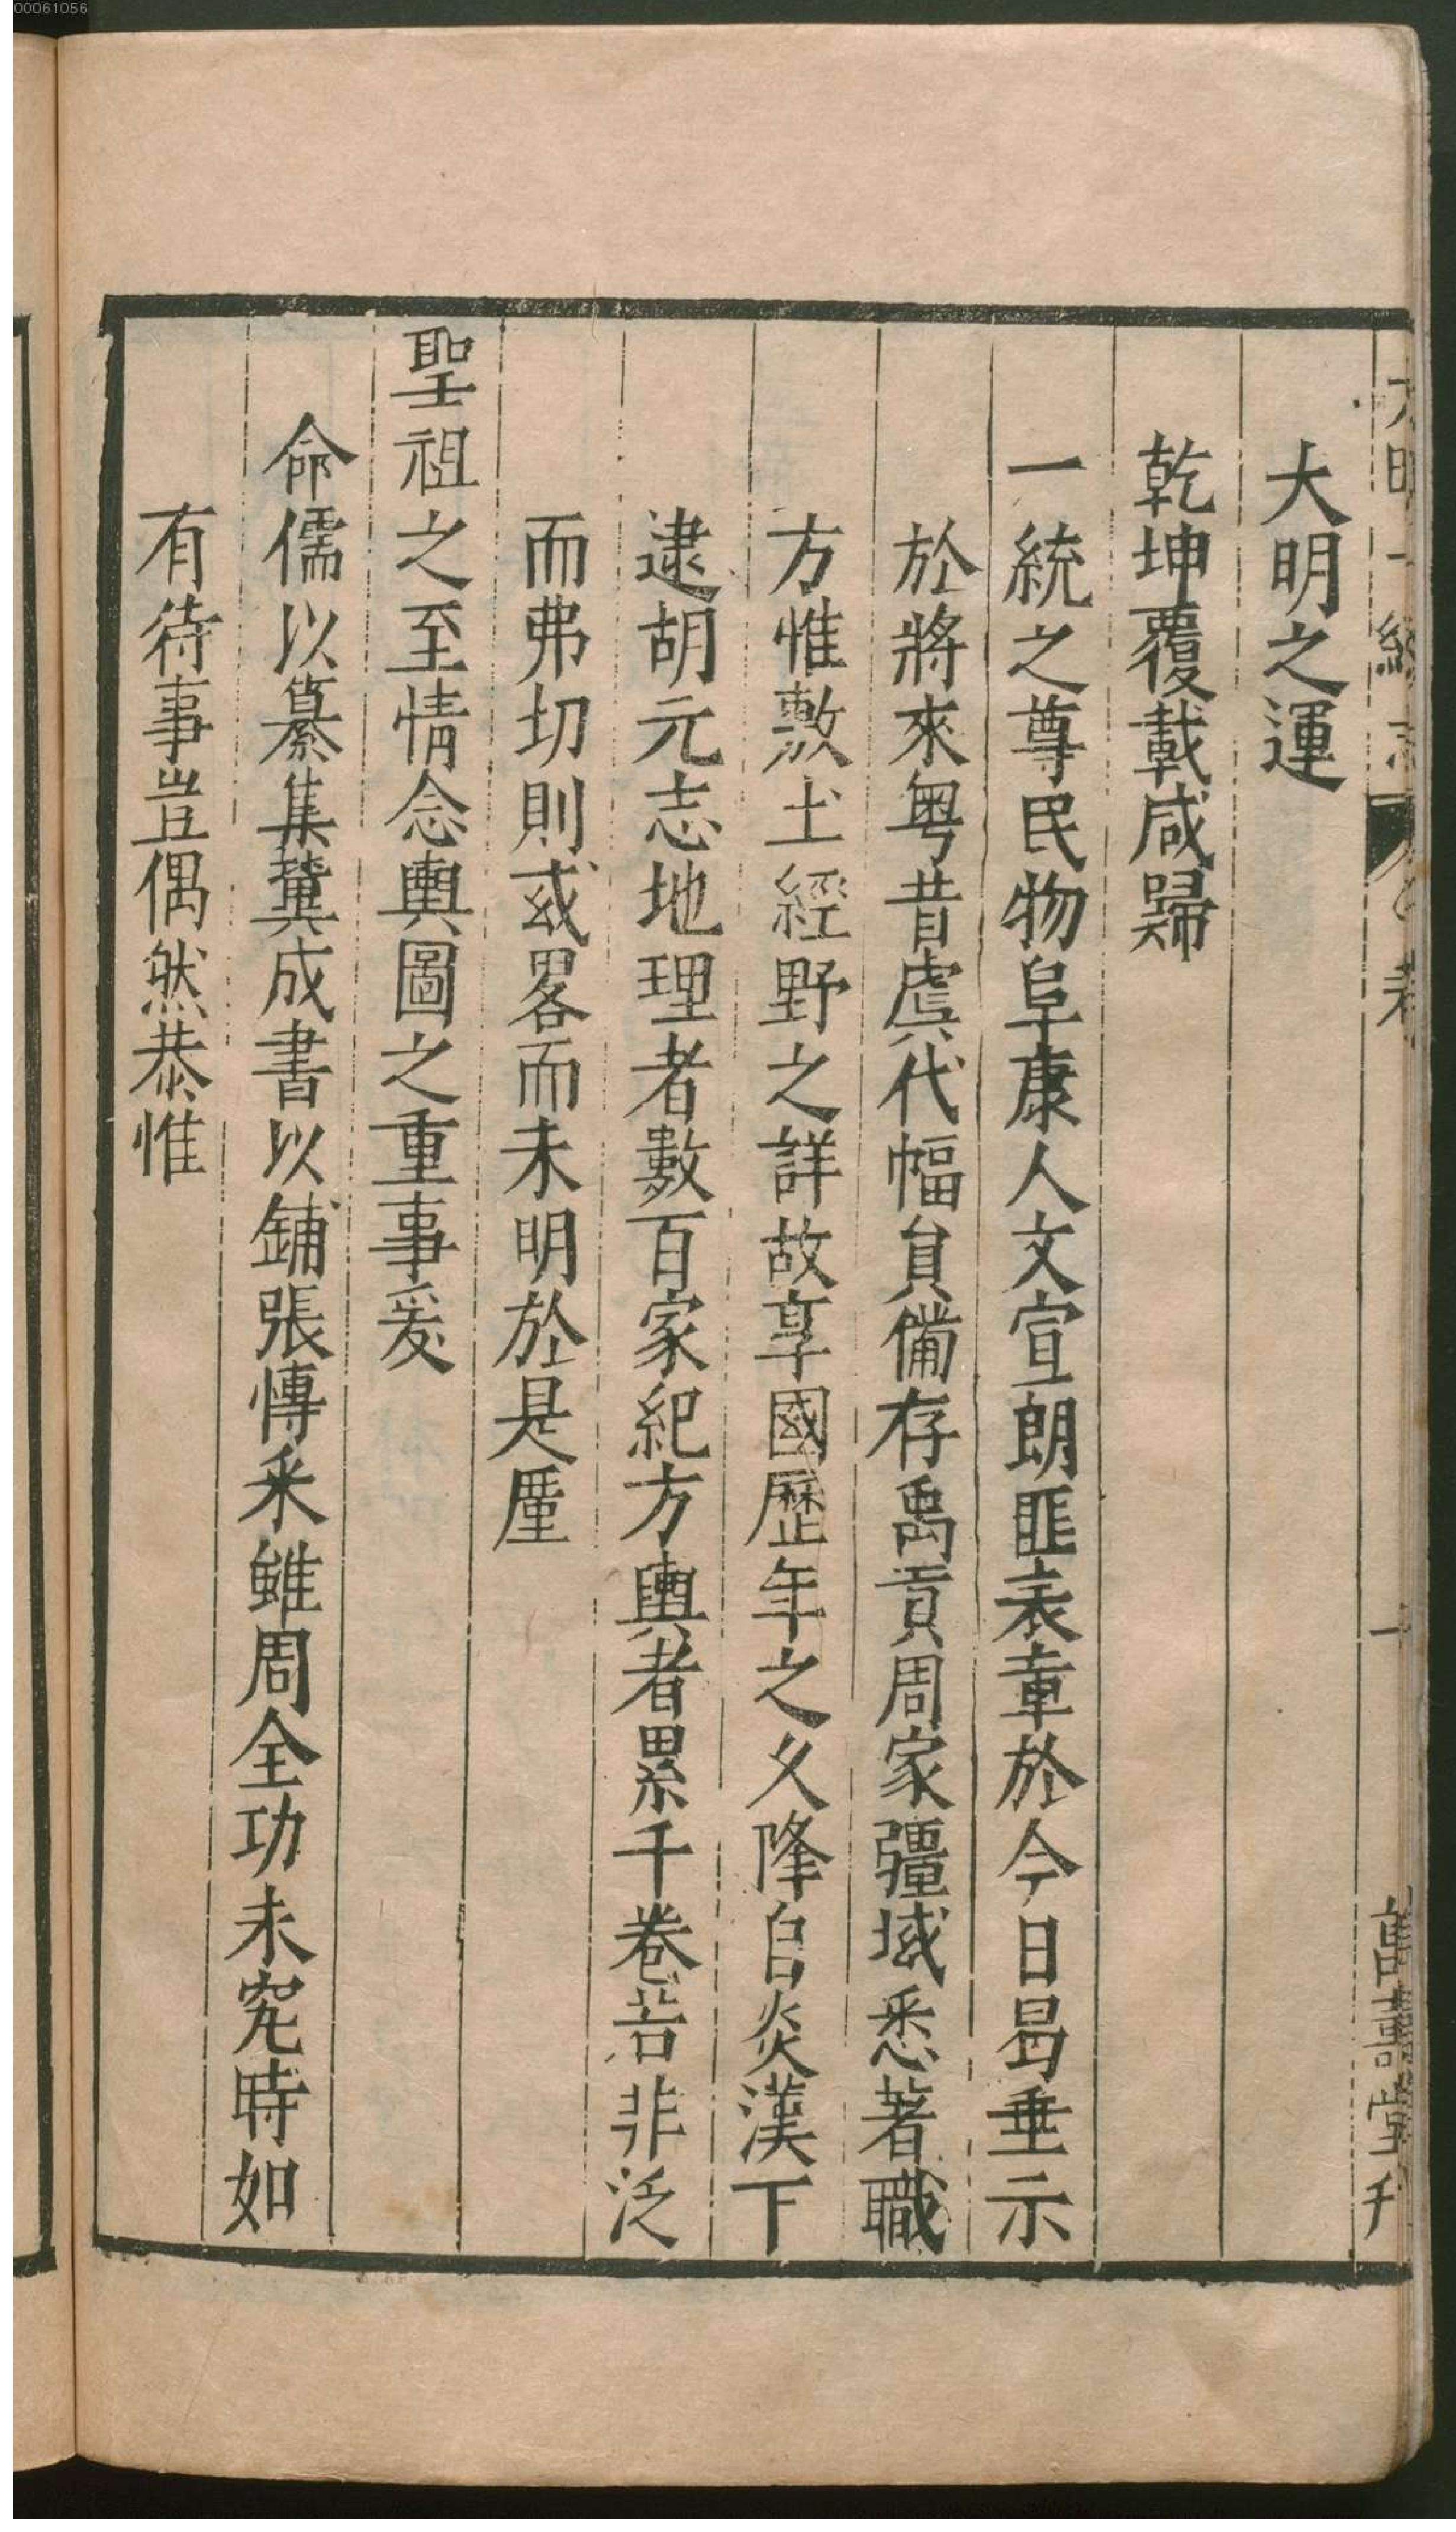 00061056
大明之運
乾坤覆載咸歸
一統之尊民物阜康人文宣朗匪表章於今日曷垂示
於將來粤昔虞代幅員備存禹貢周家疆域悉著職
方惟敷土經野之詳故享國歷年之久降自炎漢下
逮胡元志地理者數百家紀方輿者累千卷若非泛
而弗切則或畧而未明於是廑
聖祖之至情念輿圖之重事爰
命儒以纂集冀成書以鋪張慱采雖周全功未究時如
有待事豈偶然恭惟
萬壽堂刊